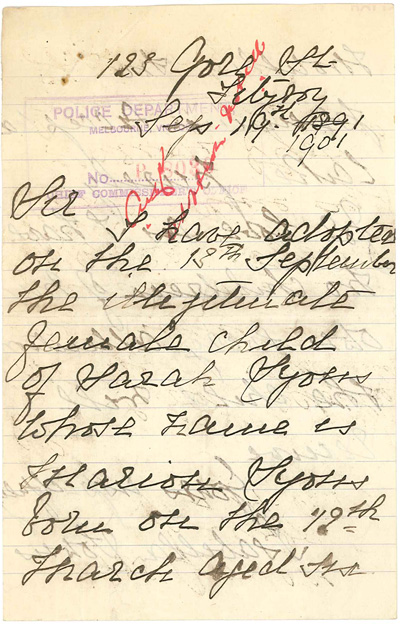 123 Gore St
Fitzroy
POLICE DEPARTMEN
MELBOURNE, VI
Sep 19th 1891
1901
No.
CHIEF COMMIS
Sir
I have adopted
on the 18th September
the illegitimate
female child
of Sarah Lyons
whose name is
Marion Lyons
born on the 19th
March aged six